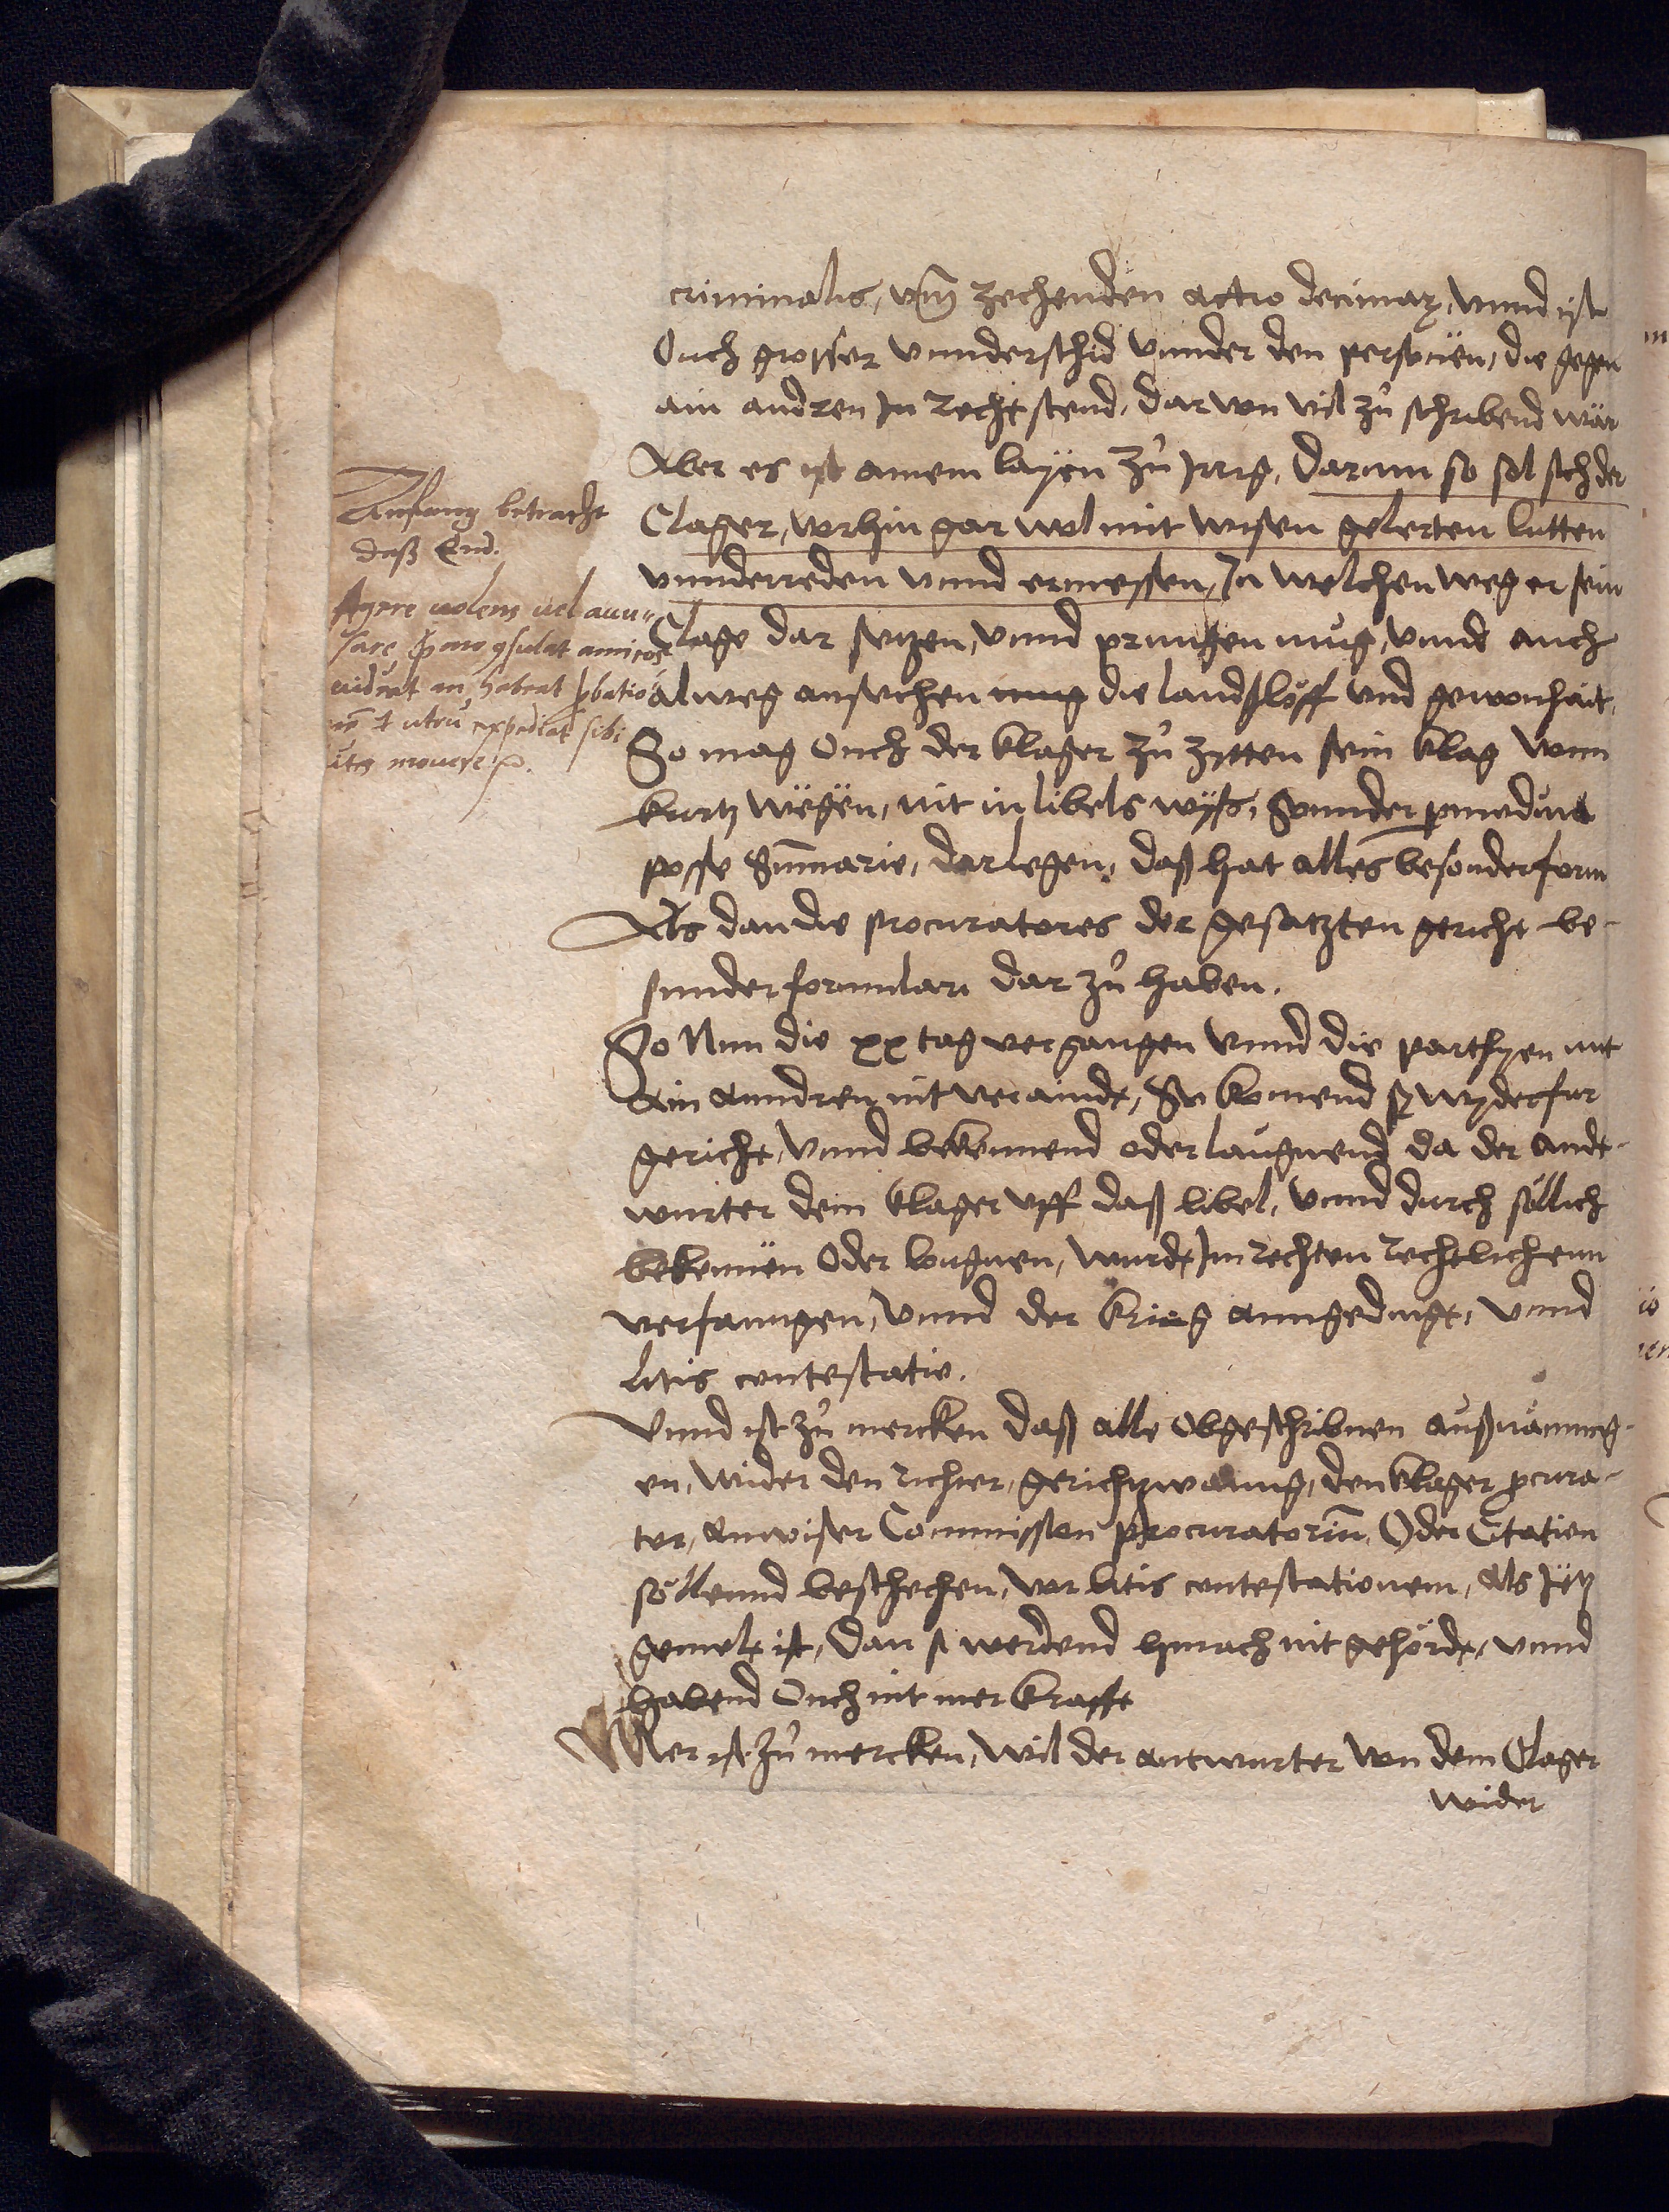 criminalis, vm̄ zechenden actio decimaꝝ, vnnd ist
Ouch grosser vnnderschid vnnder den persönen, die gegen
ain andren Jn recht stend, dar von vil zů schribend wär
Aber es ist ainem layen zů Jrrig, darum so sol sich der
Clager, vorhin gar wol mit wisen gelerten lutten
vnnderreden vnnd ermessen, Jn welchen weg er sein
Clage dar setzen, vnnd pringen mug, vnnd auch
alweg ansechen mug die landslöff vnd gewonhait.
So mag Ouch der klager zů zitten sein klag von
kurtz wëgën, nit in libels wyss, Sonnder
posse Sum̄arie, dar legen, daß hat alles besonder form
Als dan die procuratores der gesatzten gericht be-
sunder formulari dar zů haben.
So Nun die xx tag vergangen vnnd die parthyen mit
Ain anndren nit veraindt, So komend sy wyder fur
gericht, vnnd bekennend oder laugnend da der andt-
wurter dem klager vff daß libel, vnnd durch söllich
bekennen Oder lougnen, wurdt Jm rechten rechtlichenn
verfanngen, vnnd der krieg anngedingt, vnnd
litis contestatio.
Vnnd ist zů mercken daß alle Obgeschribnen außnämung-
en, wider den richter, gerichtzwanng, den klager p̱cura-
tor, Anwiser Commission procuratoriū, Oder Citation
söllennd beschechen, vor litis contestationem, als Jetz
gemelt ist, Dan si werdend hinach nit gehördt, vnnd
habend Ouch nit mer krafft
Mer ist zů mercken, wil der antwurter von dem Clager
wider
Anfang betracht
daß End.
Agere uolens uel accu-
sare p̱mo ꝯsulat amicos
uideat an habeat p̱batio-
nē et utrū expediat sibi
lites mouere